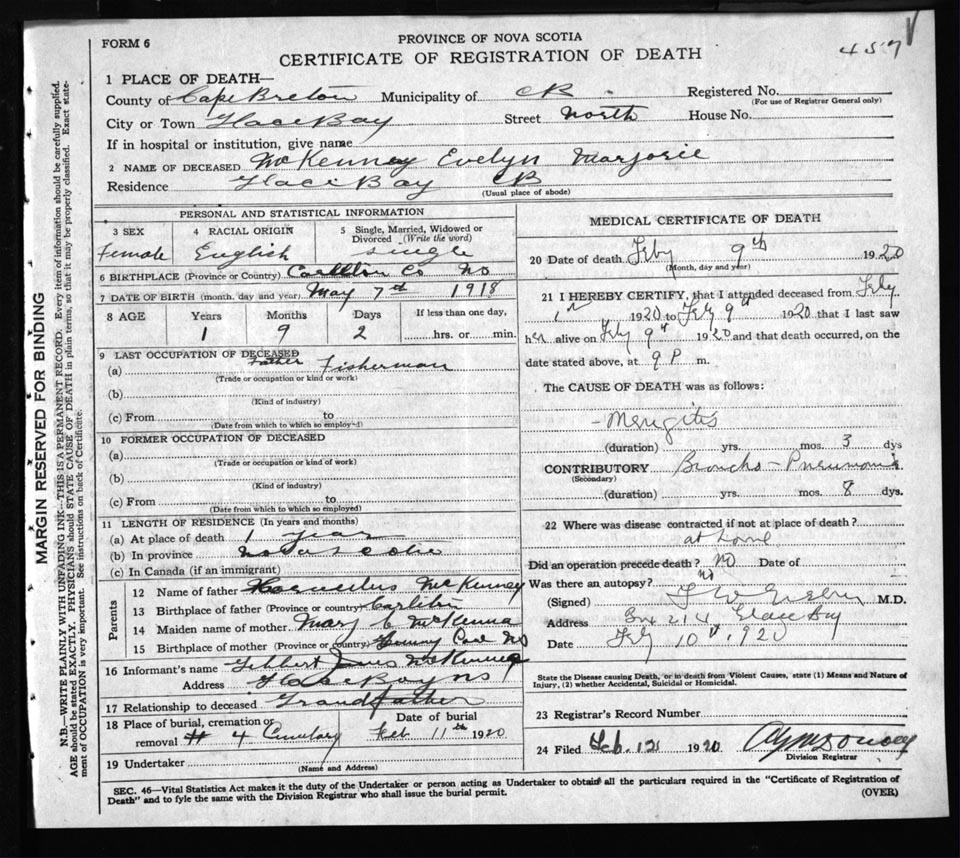 FORM 6
PROVINCE OF NOVA SCOTIA
CERTIFICATE OF REGISTRATION OF DEATH
457
1 PLACE OF DEATH—
County of Cape Breton Municipality of CB Registered No.
(For use of Registrar General only)
City or Town Glace Bay Street North House No.
If in hospital or institution, give name
2 NAME OF DECEASED McKenney Evelyn Marjorie
Residence Glace Bay CB
(Usual place of abode)
PERSONAL AND STATISTICAL INFORMATION
3 SEX
Female
4 RACIAL ORIGIN
English
5 Single, Married, Widowed or Divorced (Write the word)
Single
6 BIRTHPLACE (Province or Country) Co NS
7 DATE OF BIRTH (month, day and year) May 7th 1918
8 AGE Years Months Days If less than one day,
1 9 2 hrs. or min.
9 LAST OCCUPATION OF DECEASED
Father
(a) Fisherman
(Trade or occupation or kind or work)
(b)
(Kind of industry)
(c) From to
(Date from which to which so employed)
10 FORMER OCCUPATION OF DECEASED
(a)
(Trade or occupation or kind of work)
(b)
(Kind of industry)
(c) From to
(Date from which to which so employed)
11 LENGTH OF RESIDENCE (In years and months)
(a) At place of death 1 year
(b) In province Nova Scotia
(c) In Canada (if an immigrant)
Parents
12 Name of father McKenney
13 Birthplace of father (Province or country)
14 Maiden name of mother Mary C McKenna
15 Birthplace of mother (Province or country) NS
16 Informant's name McKenney
Address Glace Bay NS
17 Relationship to deceased Grandfather
18 Place of burial, cremation or removal # 4 Cemetary
Date of burial
Feb 11th 1920
19 Undertaker
(Name and Address)
MEDICAL CERTIFICATE OF DEATH
20 Date of death Feby 9th 1920
(Month, day and year)
21 I HEREBY CERTIFY, that I attended deceased from Feby
1920 to Feby 9th 1920 that I last saw
her alive on Feby 9th 1920 and that death occurred, on the
date stated above, at 9 P m.
The CAUSE OF DEATH was as follows:
Menigitis
(duration) yrs. mos. 3 dys
CONTRIBUTORY Broncho-Pneumonia
(Secondary)
(duration) yrs. mos. 8 dys.
22 Where was disease contracted if not at place of death?
at home
Did an operation precede death? No Date of
Was there an autopsy? no
(Signed) M.D.
Address Box 214, Glace Bay
Date Feby 10th, 1920
State the Disease causing Death, or in death from Violent Causes, state (1) Means and Nature of
Injury, (2) whether Accidental, Suicidal or Homicidal.
23 Registrar's Record Number
24 Filed Feb. 12 1920
Division Registrar
SEC. 46—Vital Statistics Act makes it the duty of the Undertaker or person acting as Undertaker to obtain all the particulars required in the "Certificate of Registration of
Death" and to fyle the same with the Division Registrar who shall issue the burial permit.
(OVER)
MARGIN RESERVED FOR BINDING
N.B.—WRITE PLAINLY WITH UNFADING INK—THIS IS A PERMANENT RECORD. Every item of information should be carefully supplied.
AGE should be stated EXACTLY. PHYSICIANS should STATE CAUSE OF DEATH in plain terms, so that it may be properly classified. Exact state-
ment of OCCUPATION is very important. See instructions on back of Certificate.